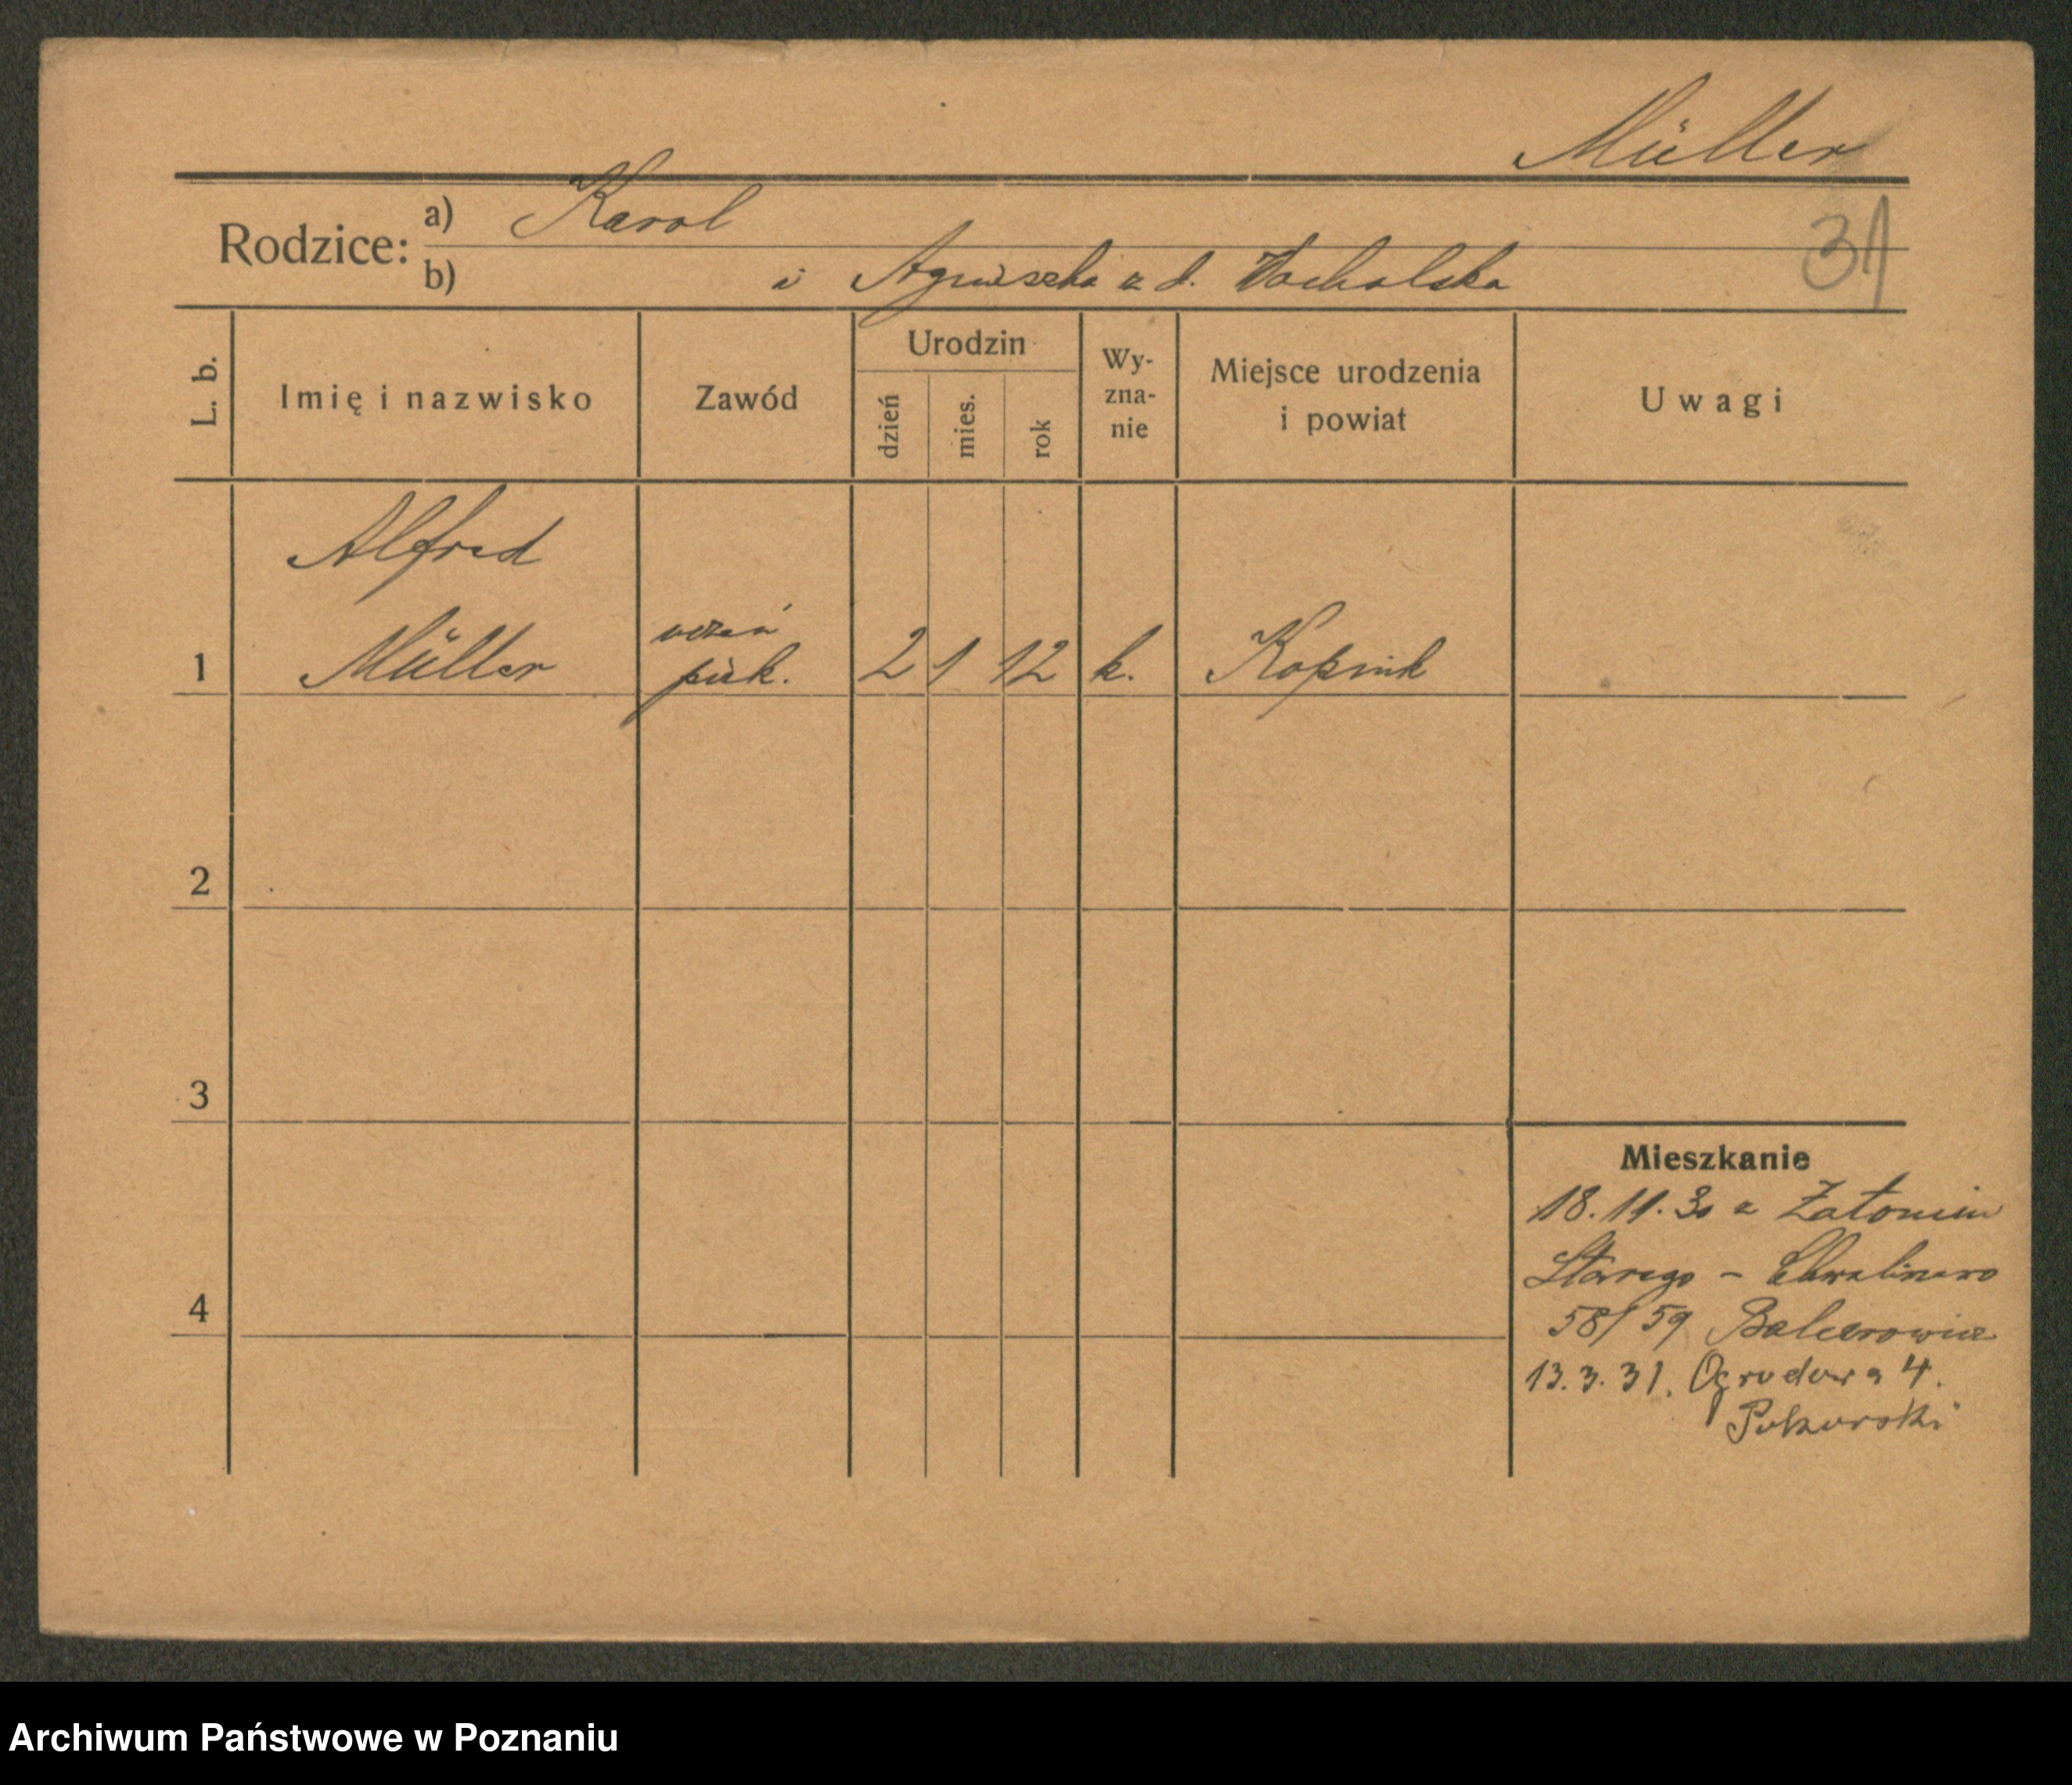 Müller
Rodzice: a) Karol
b) i Agnieszka z d. Wocholska
31
L. b. Imię i nazwisko Zawód Urodzin dzień mies. rok Wy-zna-nie Miejsce urodzenia i powiat Uwagi
Alfred
uczeń
1 Müller piek. 2 1 12 k.
2
3
Mieszkanie
18.11.30 z Zatomia
Starego -
4
58/59
13.3.31. Ogrodowa 4.
Archiwum Państwowe w Poznaniu